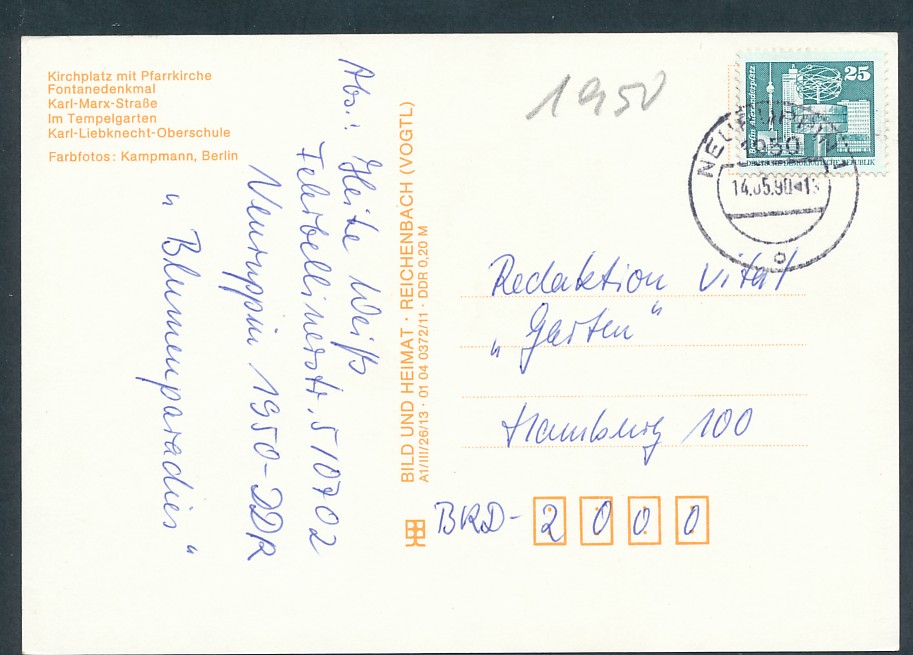 Kirchplatz mit Pfarrkirche
Fontanedenkmal
Karl-Marx-Straße
Im Tempelgarten
Karl-Liebknecht-Oberschule
Farbfotos: Kampmann, Berlin
„Blumenparadies“
Neuruppin 1950-DDR
Fehrbellinerstr. 5/0702
Abs.: Heike Weiß
BILD UND HEIMAT · REICHENBACH (VOGTL)
A1/III/26/13 · 01 04 0372/11 · DDR 0,20 M
1950
25
Berlin, Alexanderplatz
DEUTSCHE DEMOKRATISCHE REPUBLIK
NEURUPPIN 1
1950
14.05.90
o
Redaktion Vital
„Garten“
Hamburg 100
BRD-2000